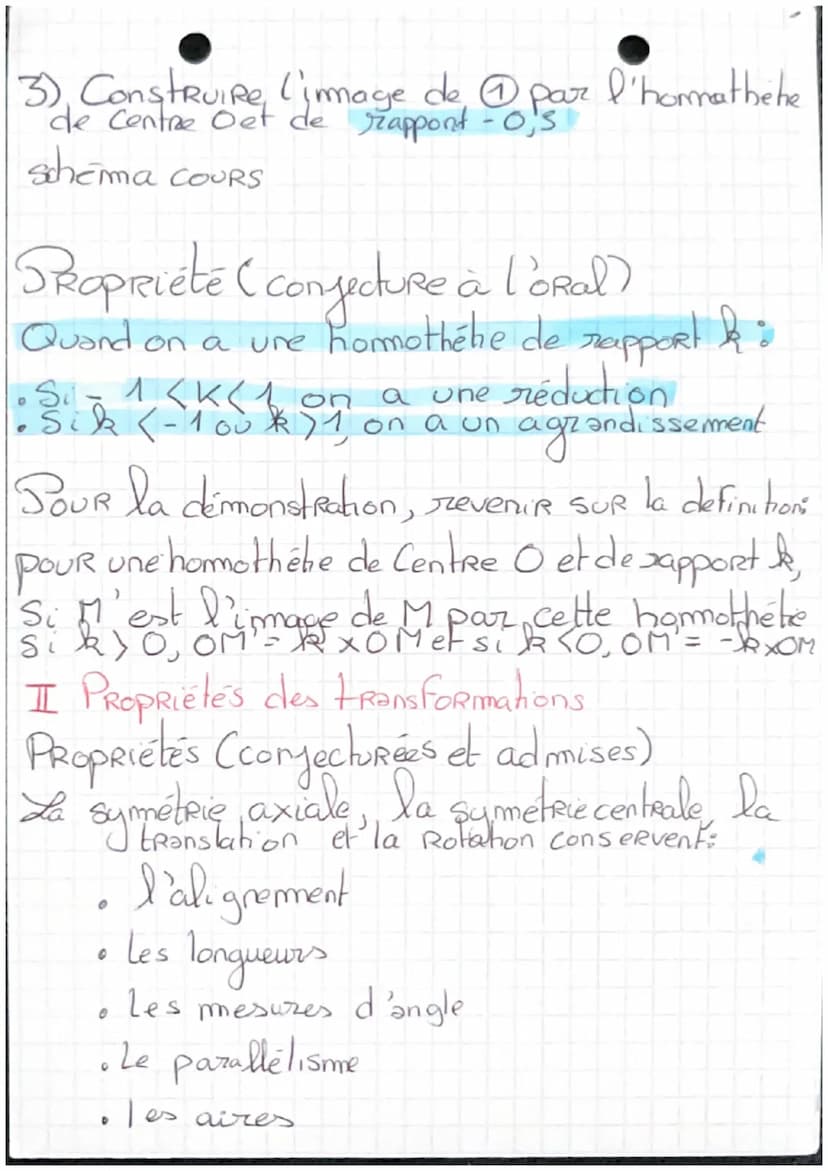 3) Construire l'immage de ① par l'hommathétie
de Centre O et de rapport -0,5
schéma cours
Propriété (conjecture à l'oral)
Quand on a une hommothétie de rapport k :
• Si -1 <K<1 on a une réduction
• Si k <-1 ou k >1, on a un agrandissement
Pour la démonstration, revenir sur la definition:
pour une hommothétie de Centre O et de rapport k,
Si M' est l'image de M par cette hommothétie
si k > 0, OM' = k x OM et si k <0, OM' = -k x OM
II Propriétés des transformations
Propriétés (conjecturées et admises)
La symétrie axiale, la symétrie centrale, la
translation et la Rotation conservent:
• l'alignement
• Les longueurs
• Les mesures d'angle
• Le parallélisme
• les aires